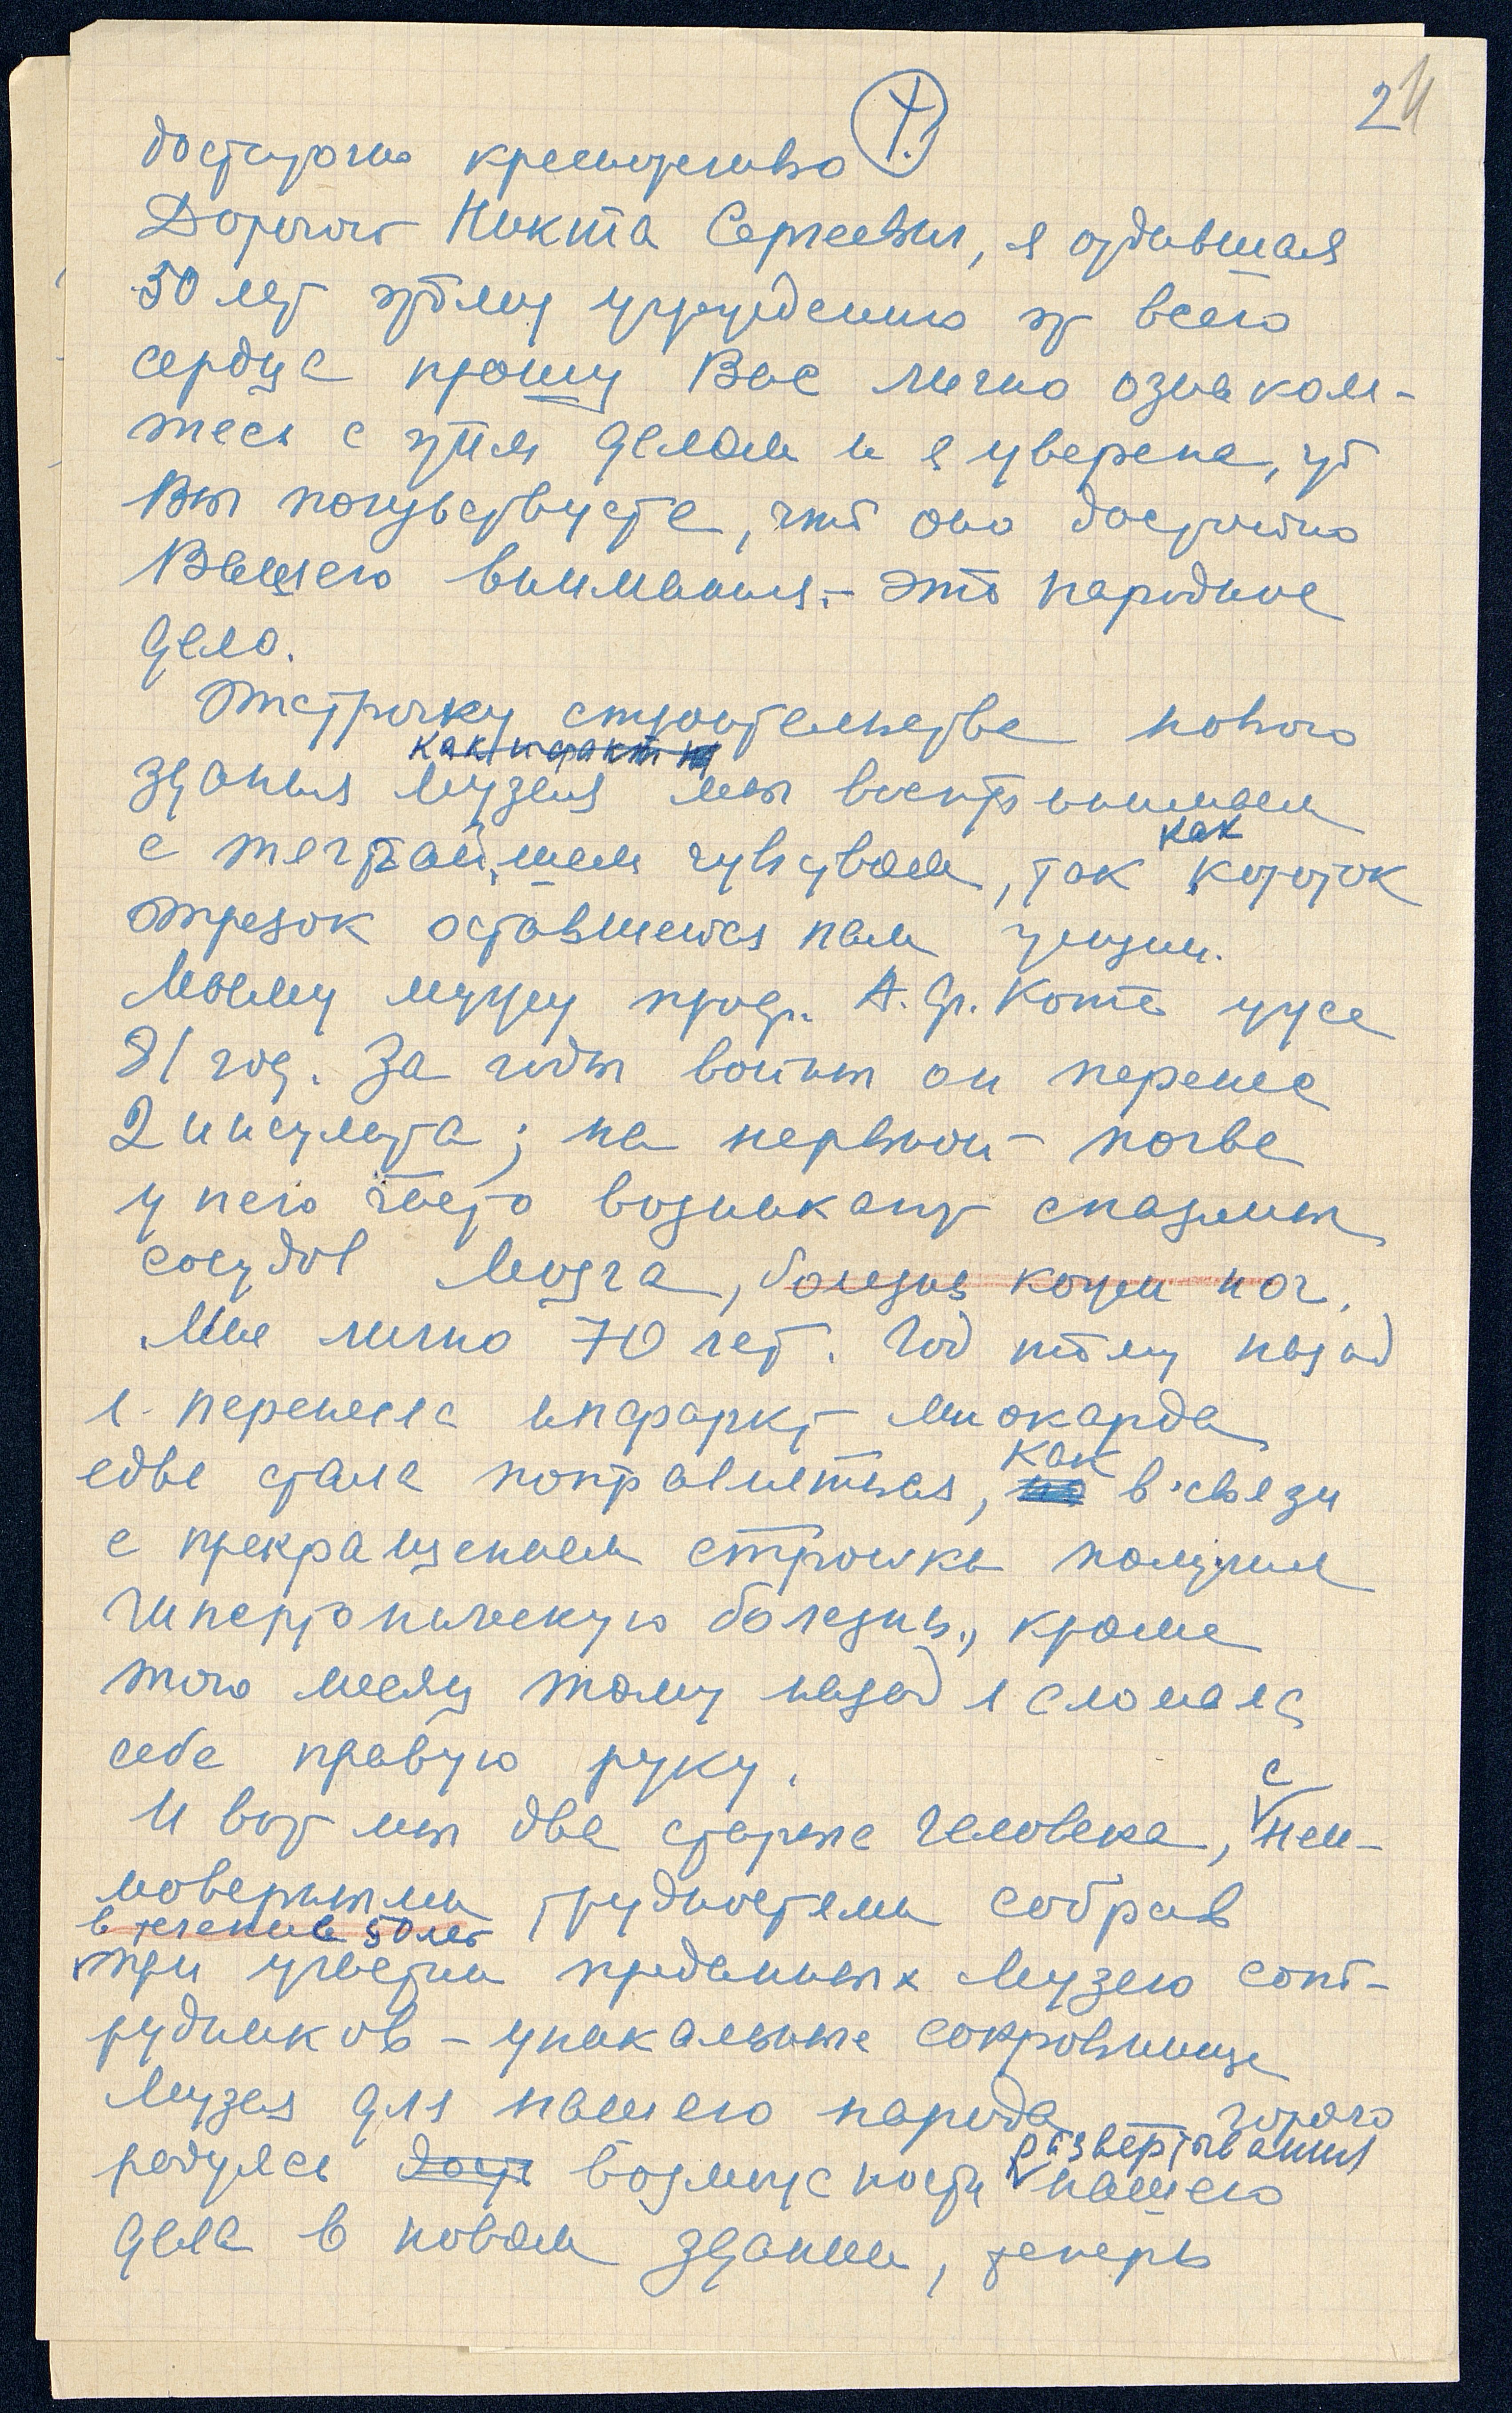 2
достаточно
Дорогой Никита Сергеевич, я отдавшая
50 лет этому учреждению от всего
сердца прошу Вас лично ознаком-
теся с этим делом и я уверена, что
Вы почувствуете, что оно достойно
Вашего внимания. – Это народное
дело.
Отстрочку строительства нового
как и факт
здания музея мы воспринимаем
с тягчайшим чувством, так как короток
отрезок оставшейся нам жизни.
Моему мужу проф. А. Ф. Котс уже
81 год. За годы войны он перенес
2 инсульта; на нервной почве
у него часто возникают спазмы
сосудов мозга, болезнь кожи ног.
Мне лично 70 лет. Год тому назад
я перенесла инфаркт миокарда
едва стала поправляться, как в связи
с прекращением стройки получила
гипертоническую болезнь, кроме
того месяц тому назад я сломала
себе правую руку.
И вот мы два старые человека, с неи-
моверными трудностями собрав
в течение 50 лет
при участии преданных Музею сот-
рудников – уникальные сокровища
Музея для нашего народа горячо
радуясь возможности развертывания нашего
дела в новом здании, теперь